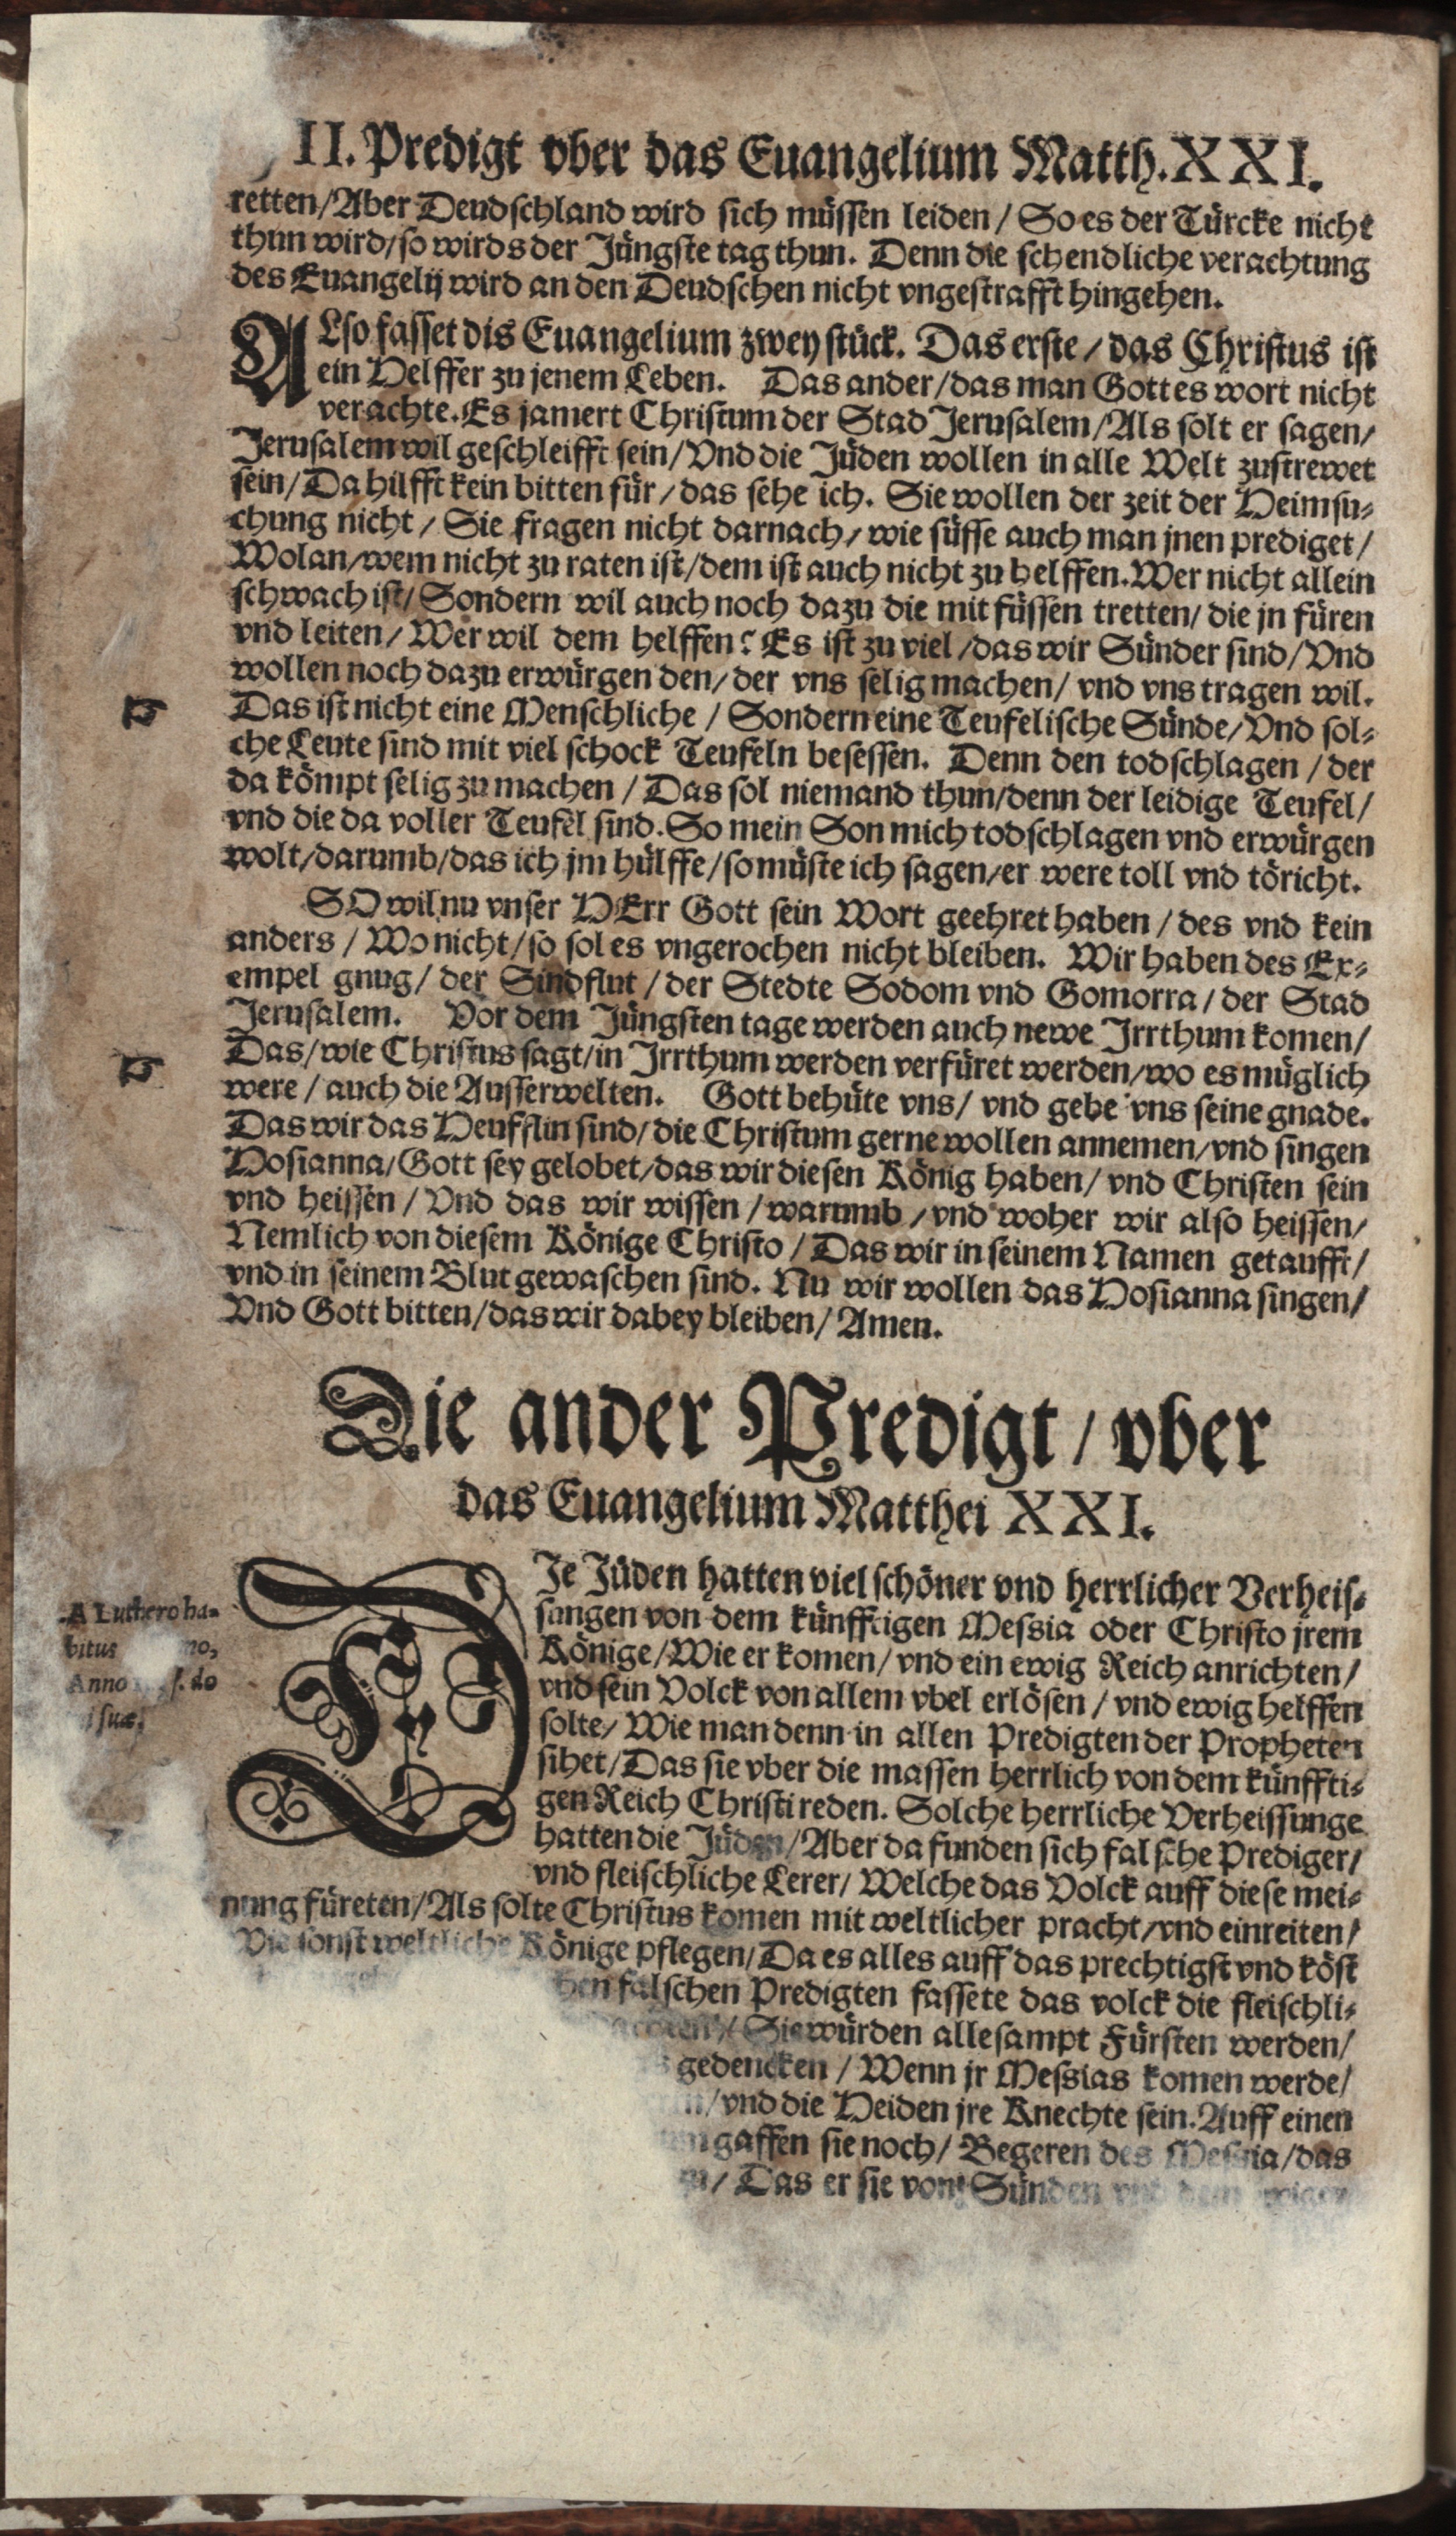 II. Predigt vber das Euangelium Matth. XXI.
retten/Aber Deudschland wird sich müssen leiden/ So es der Türcke nicht
thun wird/so wirds der Jüngste tag thun. Denn die schendliche verachtung
des Euangelij wird an den Deudschen nicht vngestrafft hingehen.
ALso fasset dis Euangelium zwey stück. Das erste/ das Christus ist
ein Helffer zu jenem Leben. Das ander/das man Gottes wort nicht
verachte. Es jamert Christum der Stad Jerusalem/Als solt er sagen/
Jerusalem wil geschleifft sein/Vnd die Jüden wollen in alle Welt zustrewet
sein/Da hilfft kein bitten für/das sehe ich. Sie wollen der zeit der Heimsu-
chung nicht/ Sie fragen nicht darnach/ wie süsse auch man jnen prediget/
Wolan/wem nicht zu raten ist/dem ist auch nicht zu helffen. Wer nicht allein
schwach ist/ Sondern wil auch noch dazu die mit füssen tretten/ die jn füren
vnd leiten/ Wer wil dem helffen? Es ist zu viel/das wir Sünder sind/Vnd
wollen noch dazu erwürgen den/ der vns selig machen/ vnd vns tragen wil.
Das ist nicht eine Menschliche/ Sondern eine Teufelische Sünde/Vnd sol-
che Leute sind mit viel schock Teufeln besessen. Denn den todschlagen/der
da kömpt selig zu machen/ Das sol niemand thun/denn der leidige Teufel/
vnd die da voller Teufel sind. So mein Son mich todschlagen vnd erwürgen
wolt/darumb/das ich jm hülffe/so müste ich sagen/er were toll vnd töricht.
SO wil nu vnser HErr Gott sein Wort geehret haben/ des vnd kein
anders/ Wo nicht/so sol es vngerochen nicht bleiben. Wir haben des Ex-
empel gnug/ der Sindflut/ der Stedte Sodom vnd Gomorra/ der Stad
Jerusalem. Vor dem Jüngsten tage werden auch newe Irrthum komen/
Das/wie Christus sagt/in Irrthum werden verfüret werden/wo es müglich
were/ auch die Ausserwelten. Gott behüte vns/ vnd gebe vns seine gnade.
Das wir das Heufflin sind/ die Christum gerne wollen annemen/vnd singen
Hosianna/Gott sey gelobet/das wir diesen König haben/ vnd Christen sein
vnd heissen/ Vnd das wir wissen/ warumb/ vnd woher wir also heissen/
Nemlich von diesem Könige Christo/ Das wir in seinem Namen getaufft/
vnd in seinem Blut gewaschen sind. Nu wir wollen das Hosianna singen/
Vnd Gott bitten/das wir dabey bleiben/ Amen.
Die ander Predigt/ vber
das Euangelium Matthei XXI.
A Luthero ha-
bitus no,
Anno f. do
suæ.
DJe Jüden hatten viel schöner vnd herrlicher Verheis-
sungen von dem künfftigen Messia oder Christo jrem
Könige/Wie er komen/ vnd ein ewig Reich anrichten/
vnd sein Volck von allem vbel erlösen/ vnd ewig helffen
solte/ Wie man denn in allen Predigten der Propheten
sihet/Das sie vber die massen herrlich von dem künffti-
gen Reich Christi reden. Solche herrliche Verheissunge
hatten die Jüden/Aber da funden sich falsche Prediger/
vnd fleischliche Lerer/ Welche das Volck auff diese mei-
nung füreten/Als solte Christus komen mit weltlicher pracht/vnd einreiten/
Wie sonst weltliche Könige pflegen/Da es alles auff das prechtigst vnd köst
falschen Predigten fassete das volck die fleischli-
/ Sie würden allesampt Fürsten werden/
gedencken/ Wenn jr Messias komen werde/
/vnd die Heiden jre Knechte sein. Auff einen
gaffen sie noch/ Begeren des Messia/das
/ Das er sie von Sünden